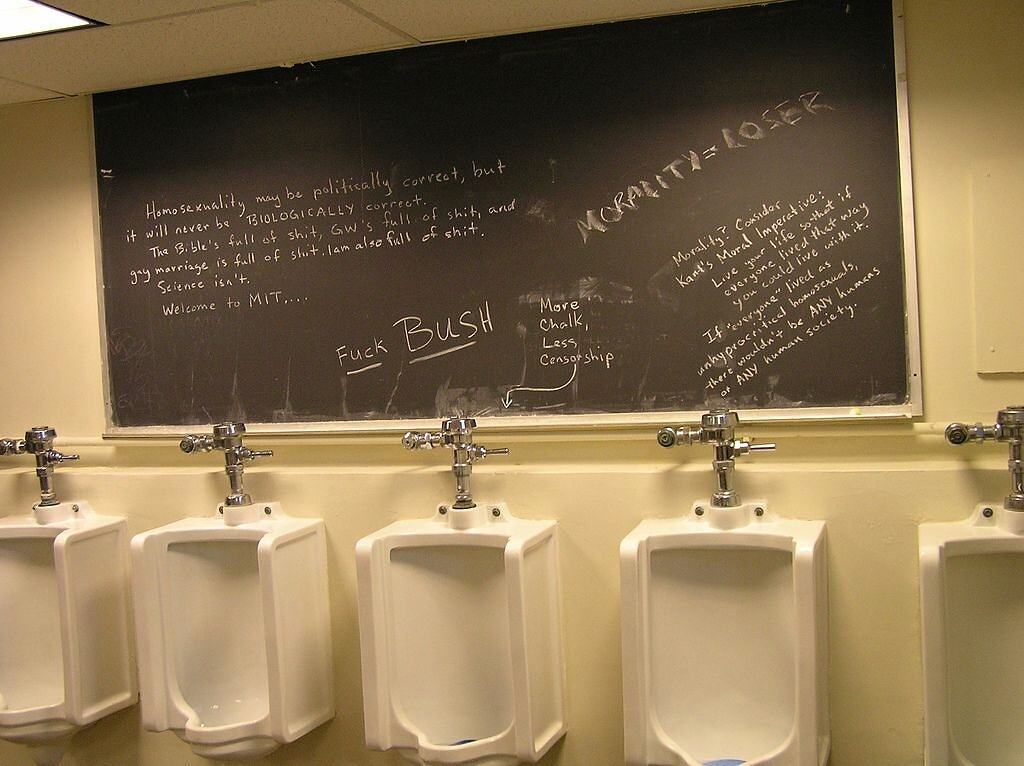 Homosexuality may be politically correct, but
it will never be BIOLOGICALLY correct.
The Bible's full of shit, GW's full of shit, and
gay marriage is full of shit. I am also full of shit.
Science isn't.
Welcome to MIT....
Fuck BUSH
More
Chalk,
Less
Censorship
MORALITY = LOSER
Morality? Consider
Kant's Moral Imperative:
Live your life so that if
everyone lived that way
you could live with it.
If "everyone" lived as
unhyprocritical homosexuals,
there wouldn't be ANY humans
or ANY human society.